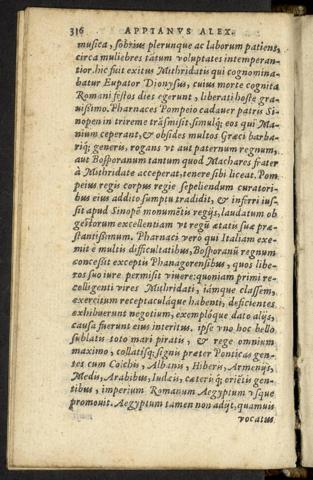 316 APPIANVS ALEX.
musica, sobrius plerunque ac laborum patiens,
circa muliebres tātum voluptates intemperan-
tior. hic fuit exitus Mithridatis qui cognomina-
batur Eupator Dionysius, cuius morte cognita
Romani festos dies egerunt, liberati hoste gra-
uissimo. Pharnaces Pompeio cadauer patris Si-
nopen in trireme trāsmisit. simulq́; eos qui Ma-
nium ceperant, & obsides multos Græci barba-
riq́; generis, rogans vt aut paternum regnum,
aut Bosporanum tantum quod Machares frater
à Mithridate acceperat, tenere sibi liceat. Pom-
peius regis corpus regie sepeliendum curatori-
bus eius addito sumptu tradidit, & inferri ius-
sit apud Sinopē monumētis regijs, laudatum ob
gestorum excellentiam vt regū ætatis suæ præ-
stantissimum. Pharnaci verò qui Italiam exe-
mit è multis difficultatibus, Bosporanū regnum
concessit exceptis Phanagorensibus, quos libe-
ros suo iure permisit viuere: quoniam primi re-
colligenti vires Mithridati, iámque classem,
& exercitum receptaculáque habenti, deficientes
exhibuerunt negotium, exemplóque dato alijs,
causa fuerunt eius interitus. ipse vno hoc bello
sublatis toto mari piratis, & rege omnium
maximo, collatisq; signis præter Ponticas gen-
tes cum Colchis, Albanis, Hiberis, Armenijs,
Medis, Arabibus, Iudæis, cæterisq́; oriētis gen-
tibus, imperium Romanum Aegyptum vsque
promouit. Aegyptum tamen non adijt, quamuis
vocatus